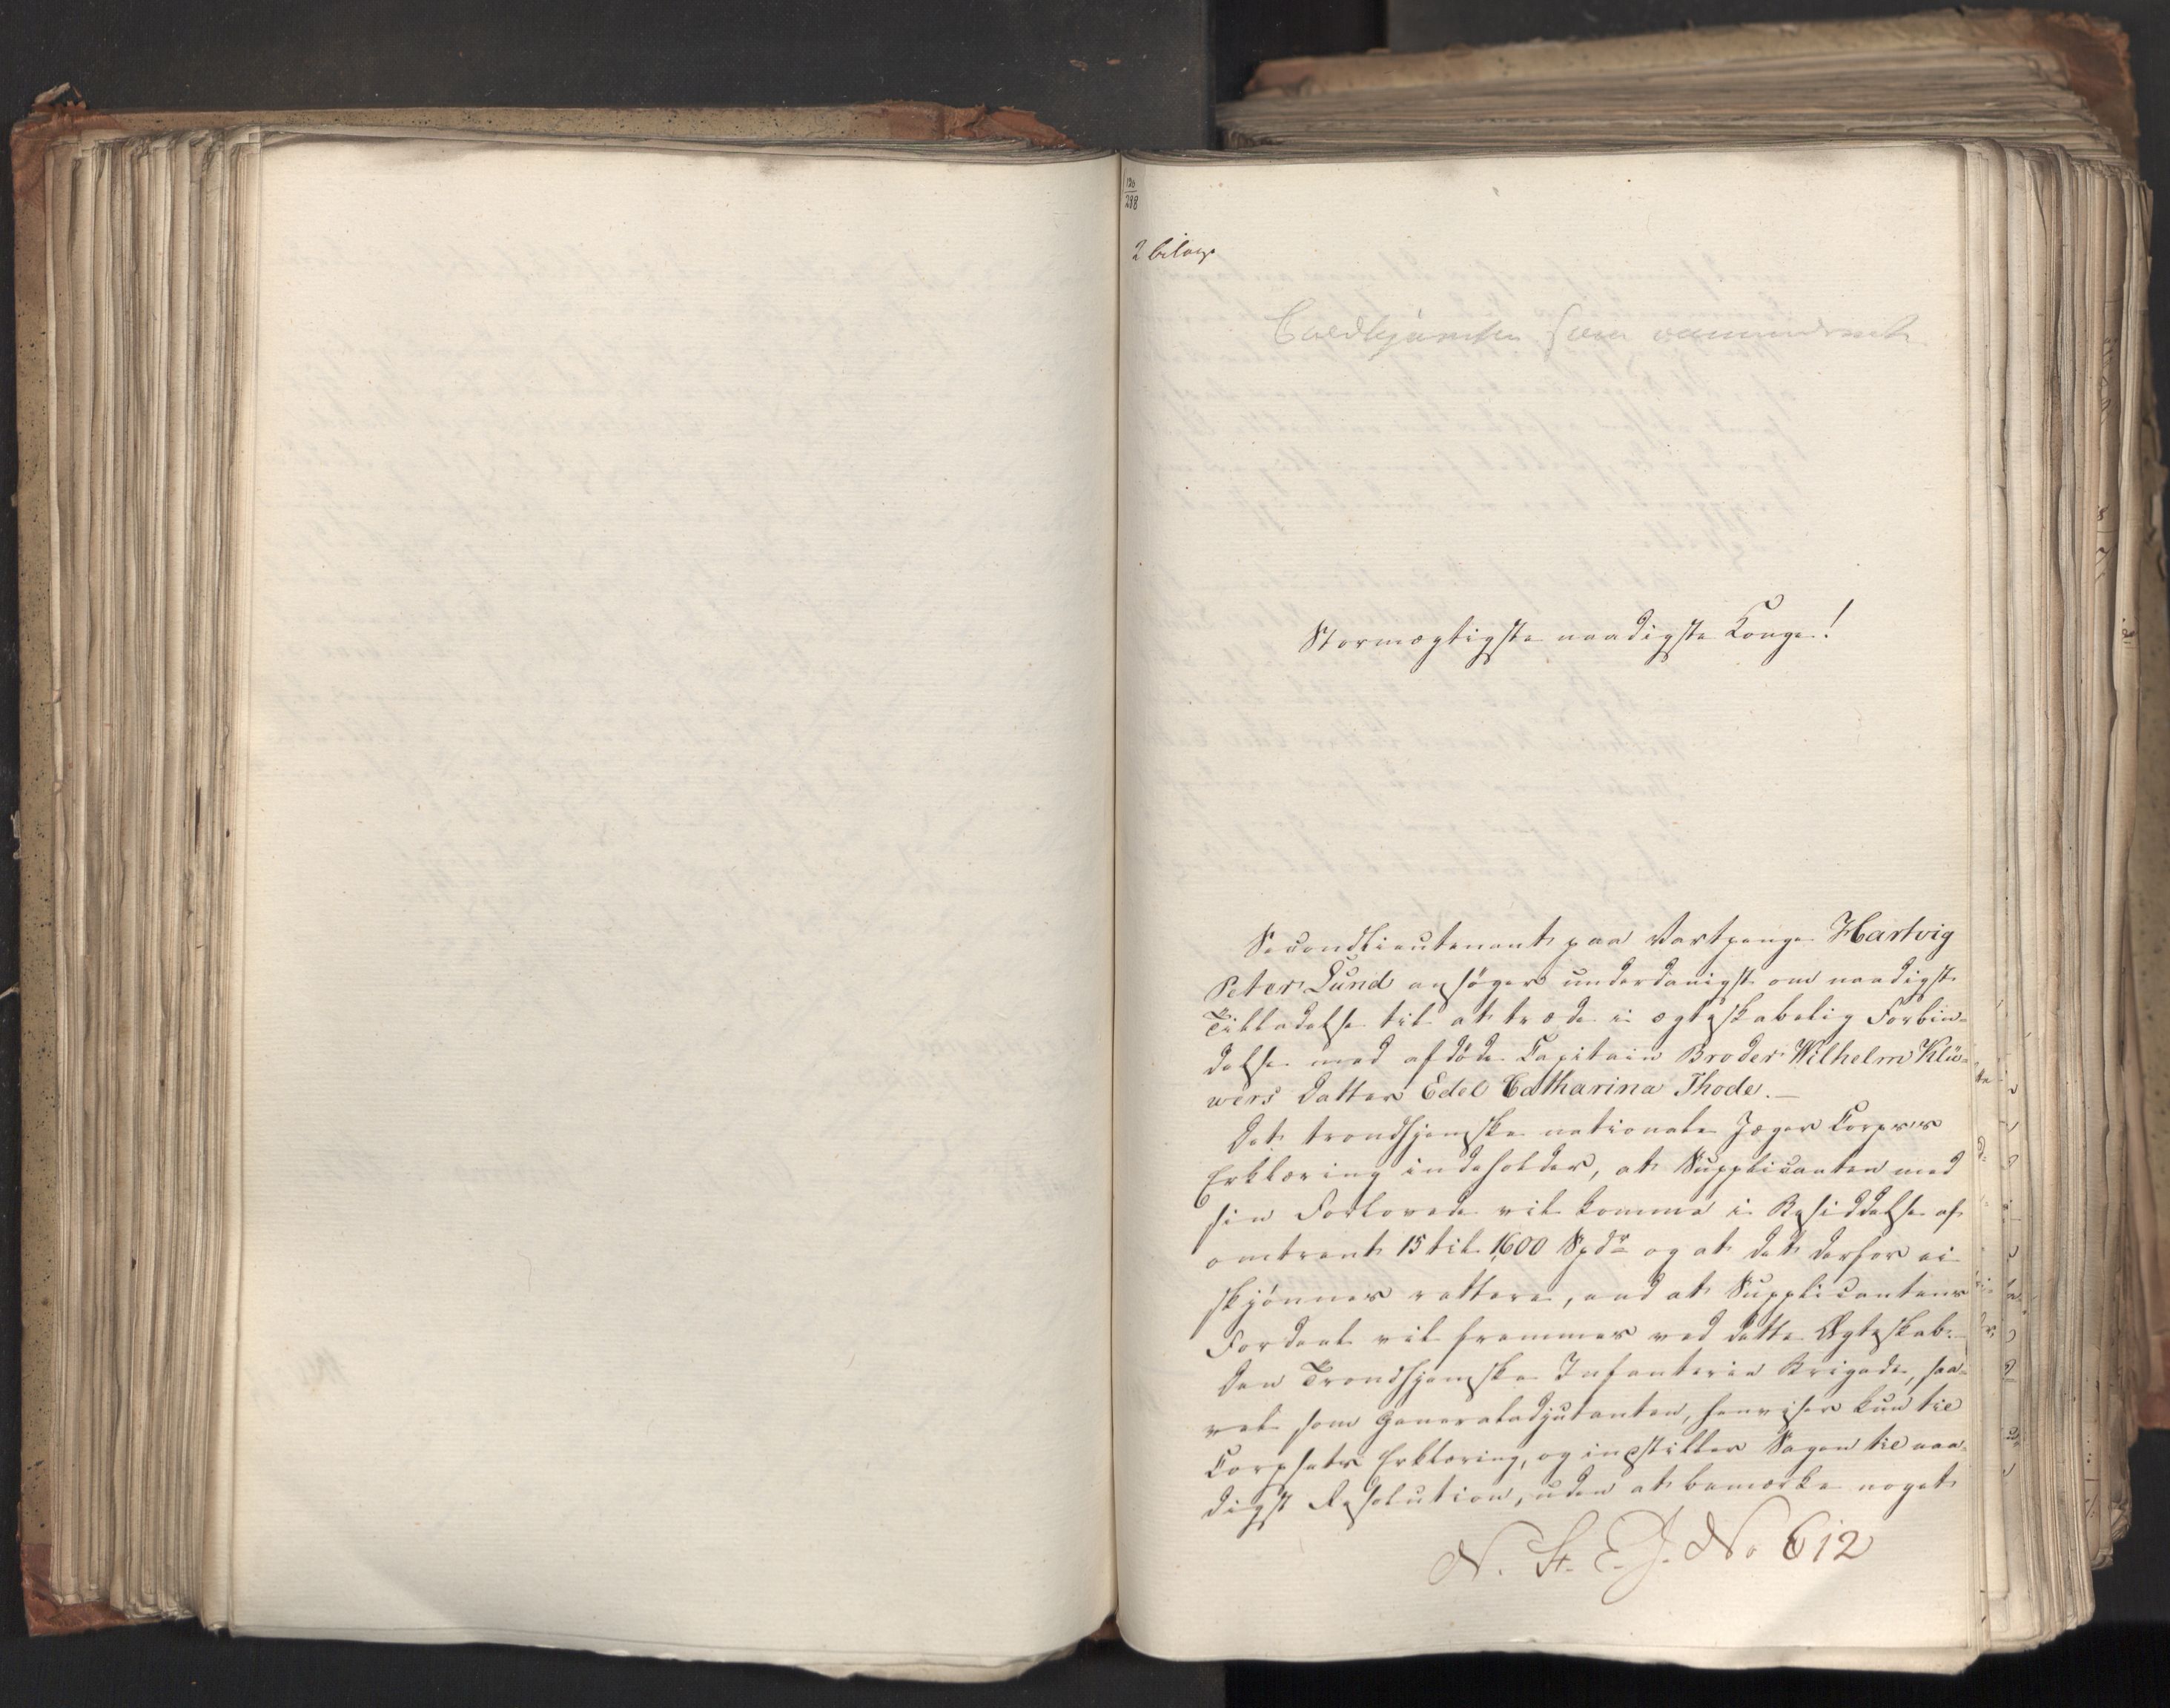 120
298
2 bilag
som
Stormægtigste naadigste Konge!
Secondlieutenant paa Vartpenge Hartvig
Peter Lund ansøger underdanigst om naadigst
Tilladelse til at træde i ægteskabelig Forbin-
delse med afdøde Capitain Broder Wilhelm Klü-
wers Datter Edel Catharina Thode. —
Det trondhjemske nationale Jæger Corps's
Erklæring indeholder, at Supplicanten med
sin Forlovede vil komme i Besiddelse af
omtrent 15 til 1600 Spdr og at det derfor ei
skjønnes rettere, end at Supplicantens
Fordeel vil fremmes ved dette Ægteskab.
Den Trondhjemske Infanterie Brigade, saa-
vel som Generaladjutanten, henviser kun til
Corpsets Erklæring, og indstiller Sagen til naa-
digst Resolution, uden at bemærke noget
N. St. E. J. No 612